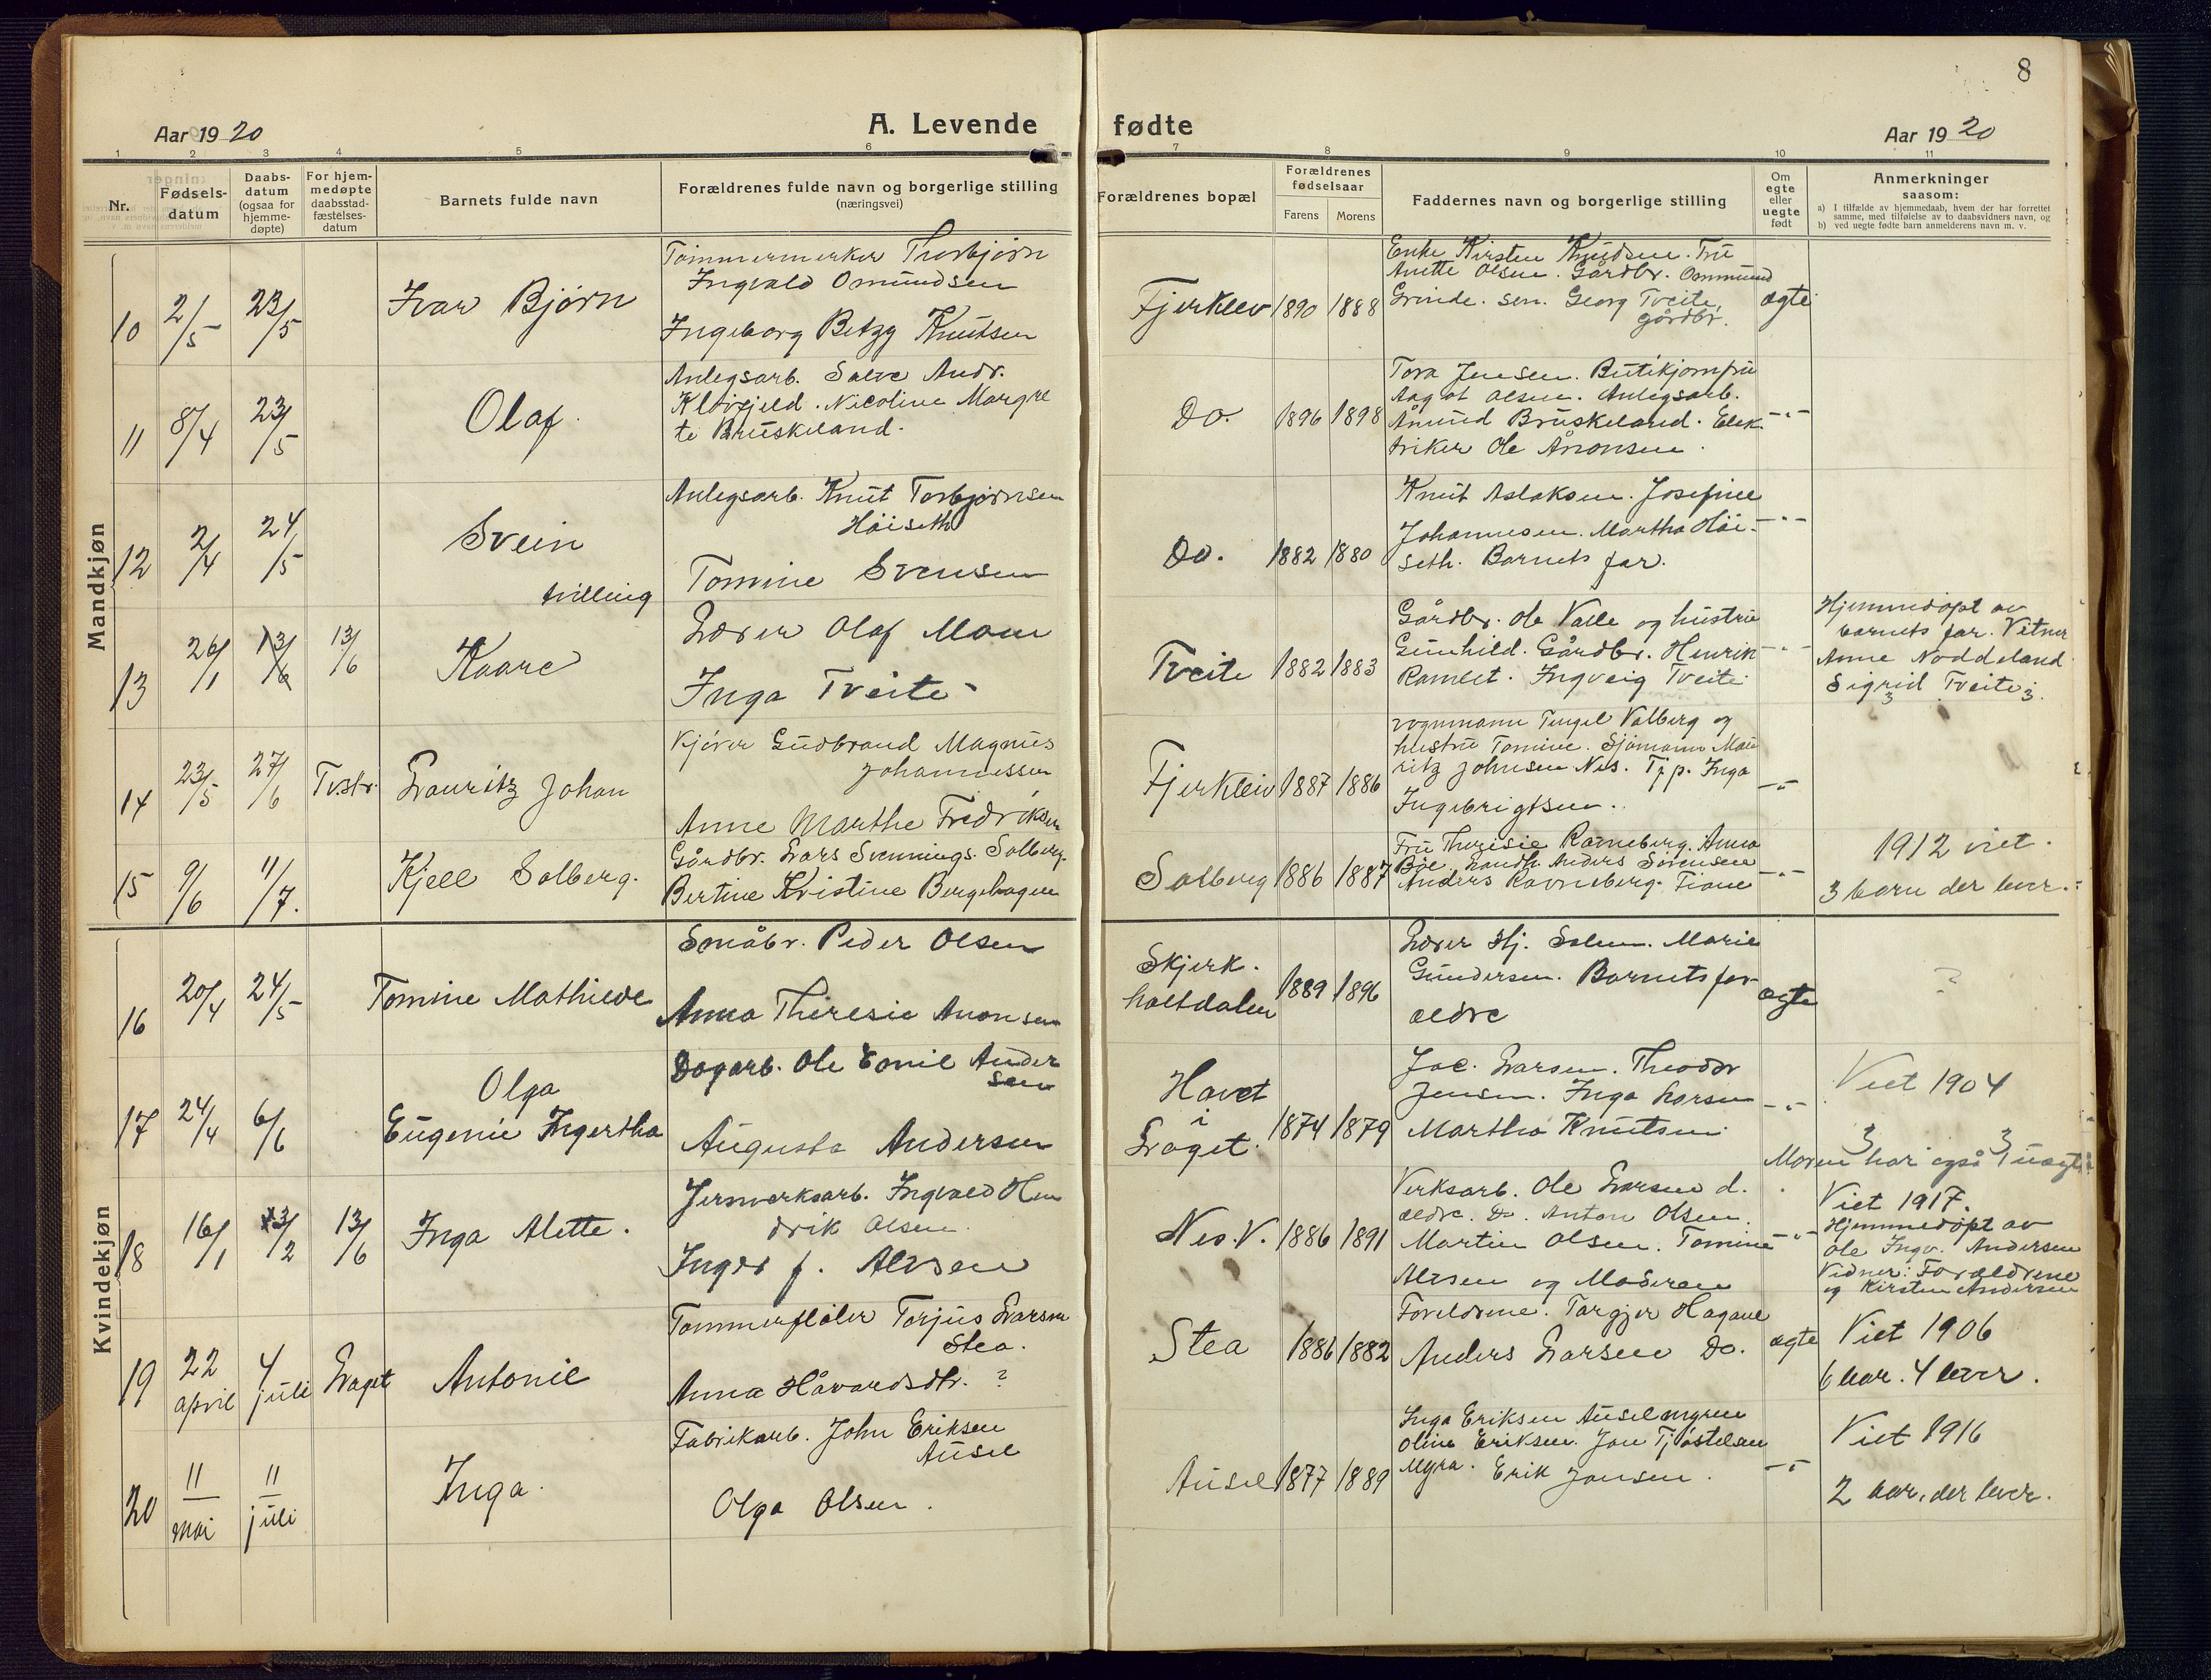 8
Aar 1920
A. Levende fødte
Aar 1920
1 2 3 4 5 6 7 8 9 10 11
Nr.
Fødsels-
datum
Daabs-
datum
(ogsaa for
hjemme-
døpte)
For hjem-
medøpte
daabsstad-
fæstelses-
datum
Barnets fulde navn
Forældrenes fulde navn og borgerlige stilling
(næringsvei)
Forældrenes bopæl
Forældrenes
fødselsaar
Farens Morens
Faddernes navn og borgerlige stilling
Om
egte
eller
uegte
født
Anmerkninger
saasom:
a) I tilfælde av hjemmedaab, hvem der har forrettet
samme, med tilføielse av to daabsvidners navn, og
b) ved uegte fødte barn anmelderens navn m. v.
Mandkjøn
10 2/5 23/5 Ivar Bjørn
Tømmermerker Thorbjørn
Ingvald Omundsen
Ingeborg Betzy Knutsen
Fjerklev 1890 1888
Enke Kirsten Knudsen. Fru
Anette Olsen. Gårdbr. Ommund
Grinde. sen. Georg Tveite,
gårdbr.
ægte
11 8/4 23/5 Olaf.
Anlegsarb. Salve Andr.
Kløvfjeld. Nicoline Margre
te Bruskeland.
Do. 1896 1898
Tora Jensen. Butikjomfru
Aagot Olsen. Anlegsarb.
Åmund Bruskeland. Elek-
triker Ole Åronsen.
-"-
12 2/4 24/5 Svein
tvilling
Anlegsarb. Knut Torbjørnsen
Høiseth
Tomine Svensen
Do. 1882 1880
Knut Aslaksen. Josefine
Johannesen. Martha Høi-
seth. Barnets far.
-"-
13 26/1 13/6 13/6 Kaare
Lærer Olaf Moen
Inga Tveite
Tveite 1882 1883
Gårdbr. Ole Valle og hustru
Gunhild. Gårdbr. Henrik
Ramlet. Ingveig Tveite.
-"-
Hjemmedøpt av
barnets far. Vitner
Anne Noddeland
Sigrid Tveite
14 23/5 27/6 Tv.str. Lauritz Johan
Kjører Gudbrand Magnus
Johannessen
Anne Marthe Fredriksen
Fjerkleiv 1887 1886
vognmann Tengel Valberg og
hustru Tomine. Sjømann Mau
ritz Johnsen Nes. Tjp. Inga
Ingebrigtsen.
-"-
15 9/6 11/7. Kjell Solberg.
Gårdbr. Lars Svennings. Solberg.
Bertine Kristine Bergehagen
Solberg 1886 1887
Fru Theresie Ramsberg. Anna
Bøe. Landh. Anders Sørensen
Anders Ravneberg. Tiane
-"-
1912 viet.
3 barn der lever.
Kvindekjøn
16 20/4 24/5 Tomine Mathilde
Småbr. Peder Olsen
Anna Theresie Aronsen
Skjerk.
holtdalen
1889 1896
Lærer Hj. Solum. Marie
Gundersen. Barnets for-
ældre
ægte
?
17 24/4 6/6 Olga
Eugenie Ingertha
Dagarb. Ole Emil Ander
sen
Augusta Andersen
Havet
i
Laget.
1874 1879
Jac. Larsen. Theodor
Jensen. Inga Larsen
Martha Knutsen
-"-
Viet 1904
3 3
Moren har også 1 uægte
18 16/1 3/2 13/6 Inga Alette.
Jernverksarb. Ingvald Hen
drik Olsen.
Inger f. Alvsen
Nes. V. 1886 1891
Verksarb. Ole Larsen d.
ældre. Do. Anton Olsen.
Martin Olsen. Tomine
Alvsen og Moderen
-"-
Viet 1917.
Hjemmedøpt av
Ole Ingv. Andersen
Vidner: Forældrene
og Kirsten Andersen
19 22 april 4 juli Laget Antonie
Tømmerfløter Torjus Larsen
Stea.
Anna Håvardsdtr. ?
Stea 1886 1882
Foreldrene. Targjer Hagane
Anders Larsen Do.
ægte
Viet 1906
6 bar. 4 lever.
20 11 mai 11 juli Inga.
Fabrikarb. John Eriksen
Ausel
Olga Olsen.
Ausel 1877 1889
Inga Eriksen Auselmyren
Oline Eriksen. Jon Tjøstelsen
Myra. Erik Jonsen.
-"-
Viet 1916
2 bar, der lever.